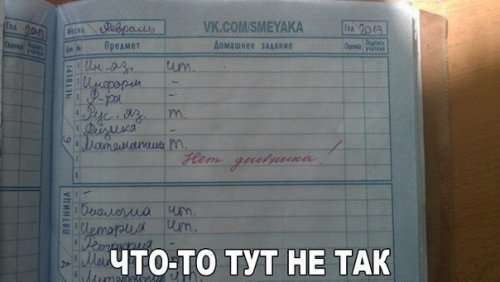 Месяц Февраль VK.COM/SMEYAKA Год 2019
Предмет Домашнее задание Оценка
ЧЕТВЕРГ
6
1 Ин. яз. чт.
2 Информ -
3 Л-ра -
4 Рус. яз. т.
5 Физика -
6 Математика т.
7 Нет дневника!
8
ПЯТНИЦА
7
1 -
2 Биология чт.
3 История чт.
4 География -
ЧТО-ТО ТУТ НЕ ТАК
чт.